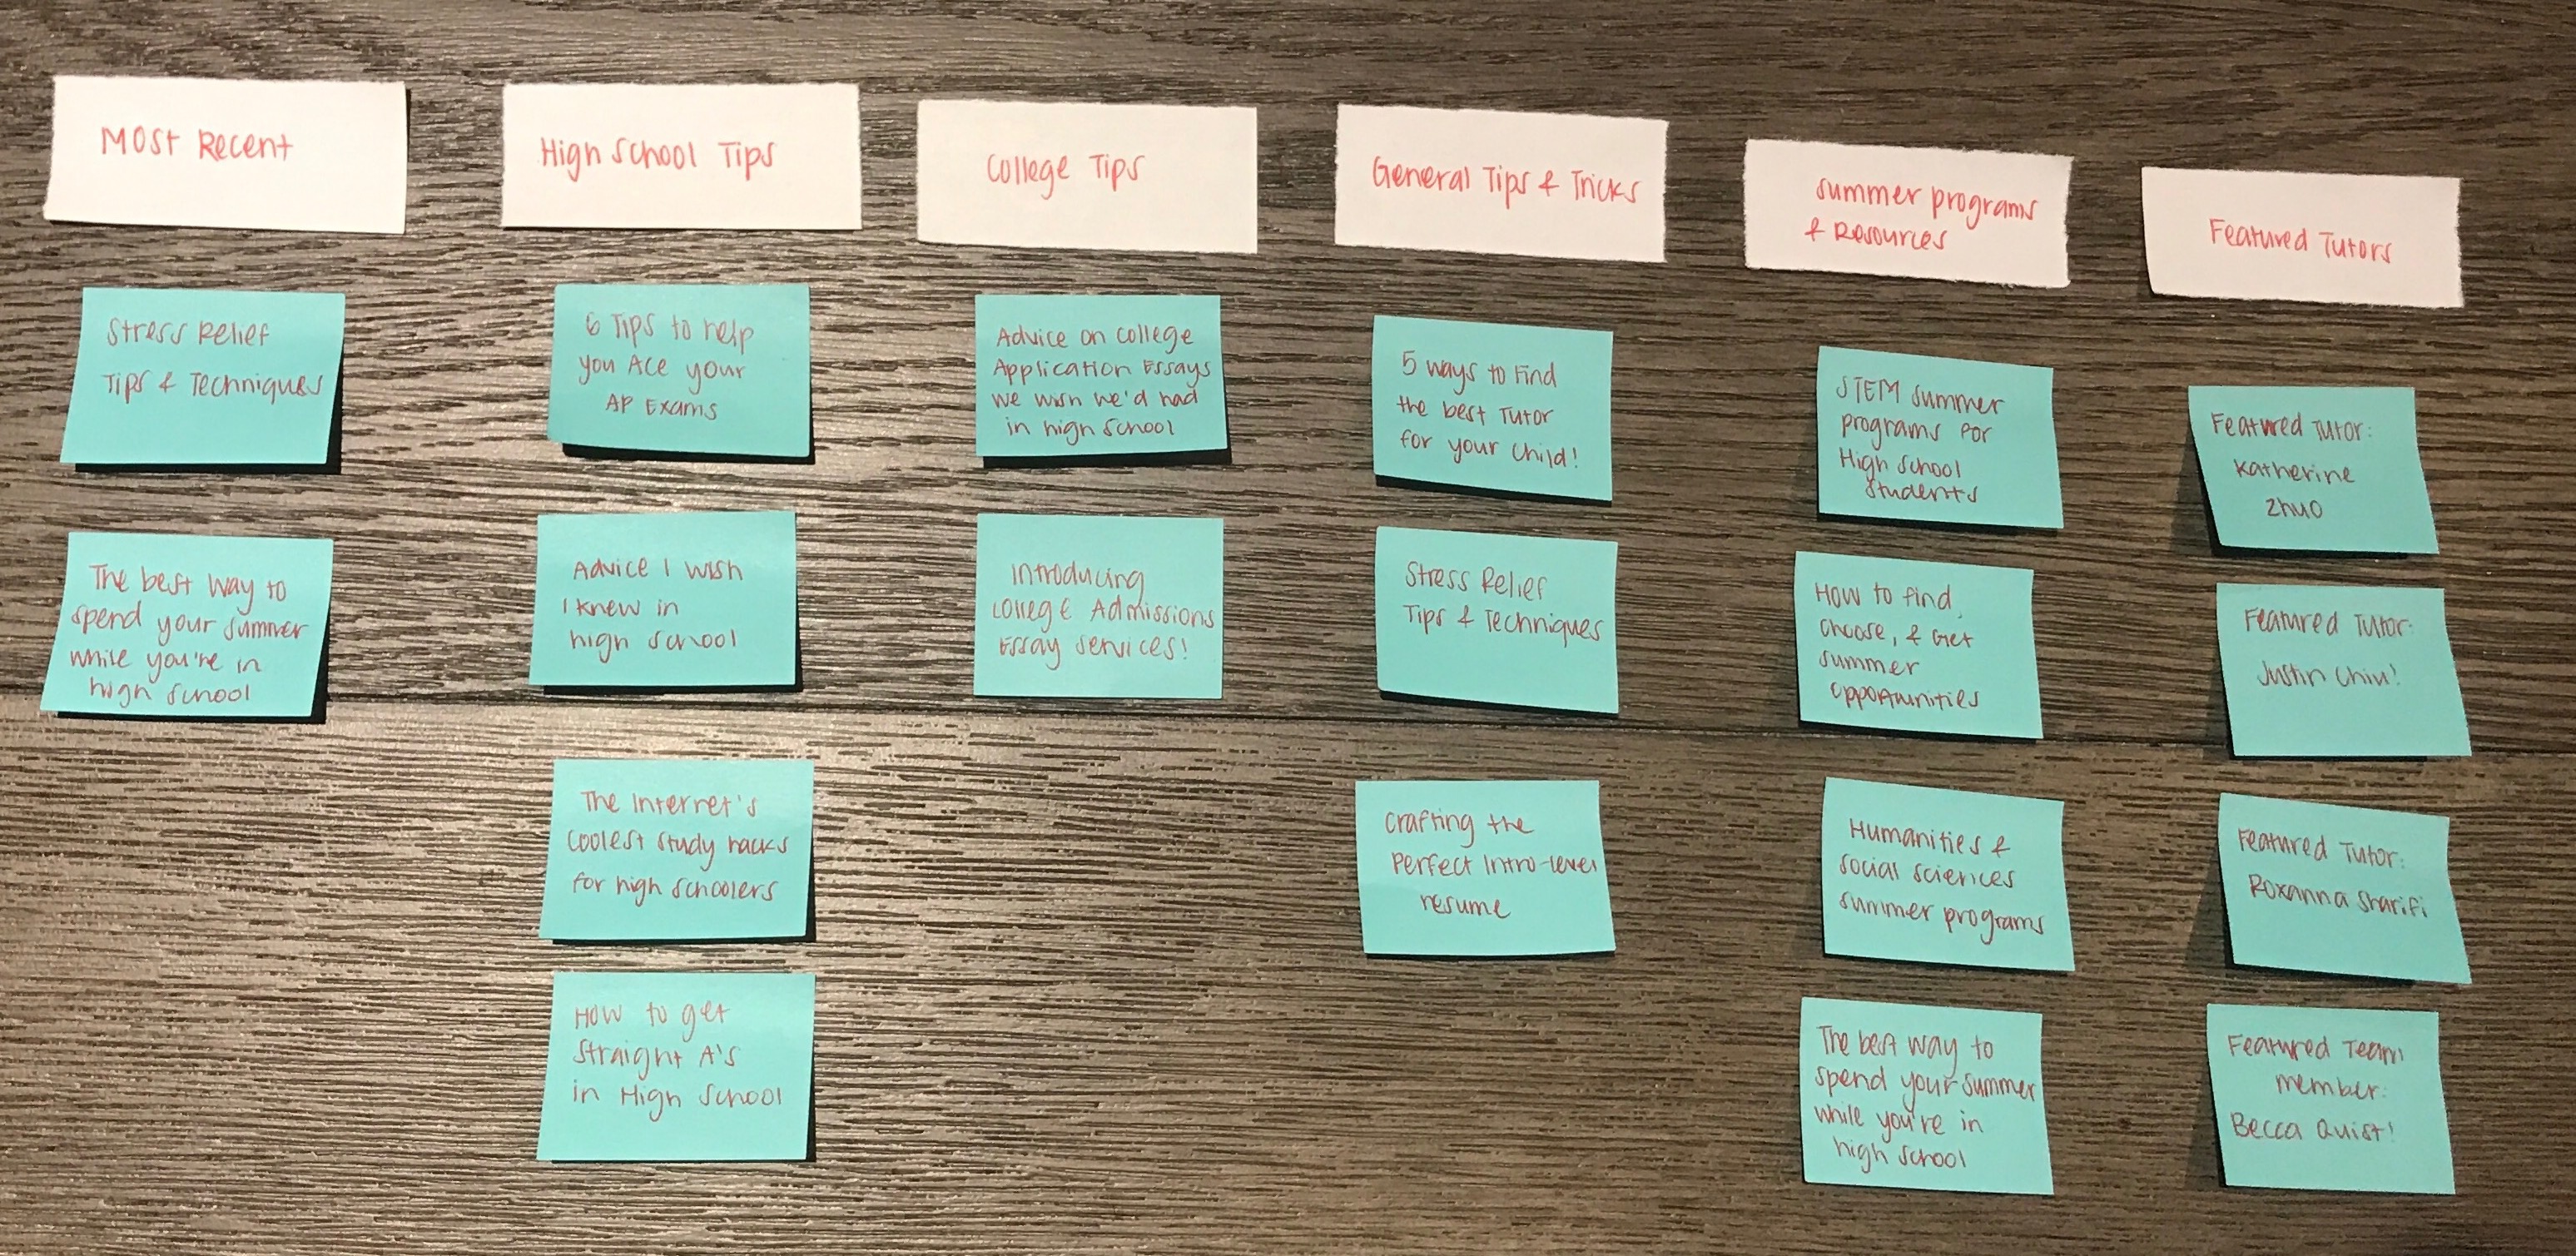 Most Recent
Stress Relief
Tips & Techniques
The best way to
spend your summer
while you're in
high school
High School Tips
6 Tips to help
you Ace your
AP Exams
Advice I wish
I knew in
high school
The Internet's
coolest study hacks
for high schoolers
How to get
straight A's
in High School
College Tips
Advice on college
Application Essays
we wish we'd had
in high school
Introducing
College Admissions
Essay services!
General Tips & Tricks
5 ways to find
the best Tutor
for your child!
Stress Relief
Tips & Techniques
Crafting the
Perfect Intro-level
resume
summer programs
& Resources
STEM summer
programs for
High School
students
How to find,
choose, & get
summer
opportunities
Humanities &
social sciences
summer programs
The best way to
spend your summer
while you're in
high school
Featured Tutors
Featured Tutor:
Katherine
Zhuo
Featured Tutor:
Justin Chiu!
Featured Tutor:
Roxanna Sharifi
Featured Team
member:
Becca Quist!